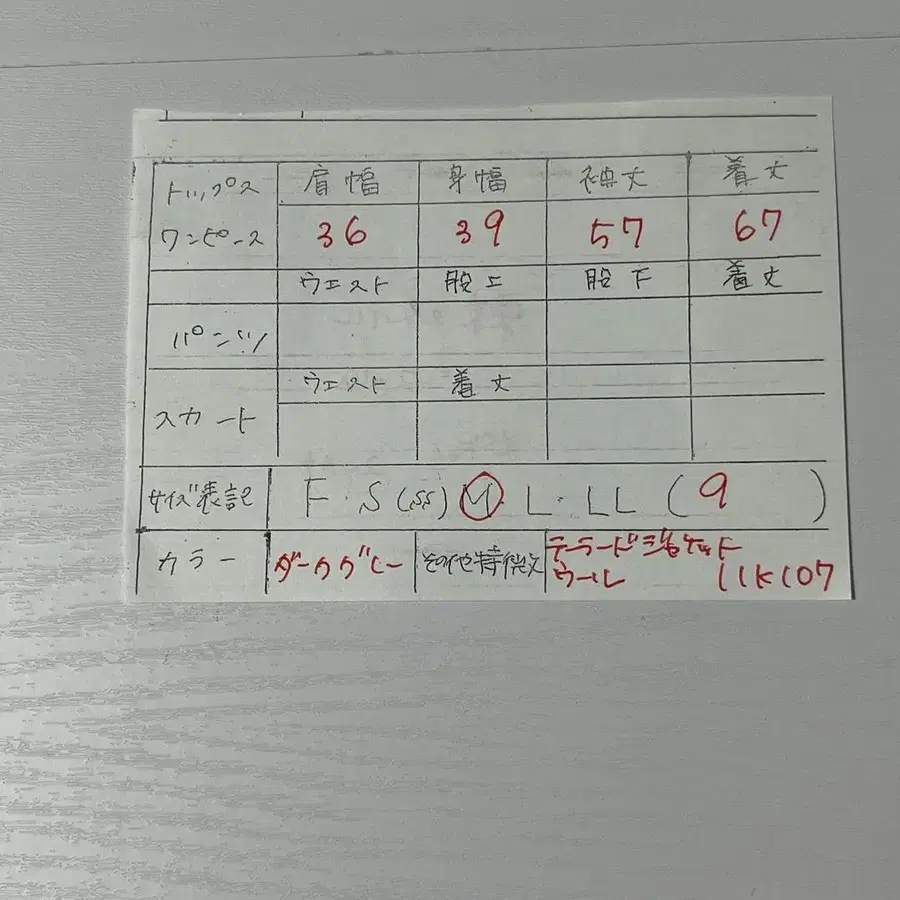 トップス 肩幅 身幅 袖丈 着丈
ワンピース 36 39 57 67
ウエスト 股上 股下 着丈
パンツ
ウエスト 着丈
スカート
サイズ表記 F・S(SS)M・L・LL(9)
カラー ダークグレー その他特徴 テーラードジャケット
ウール 11K107